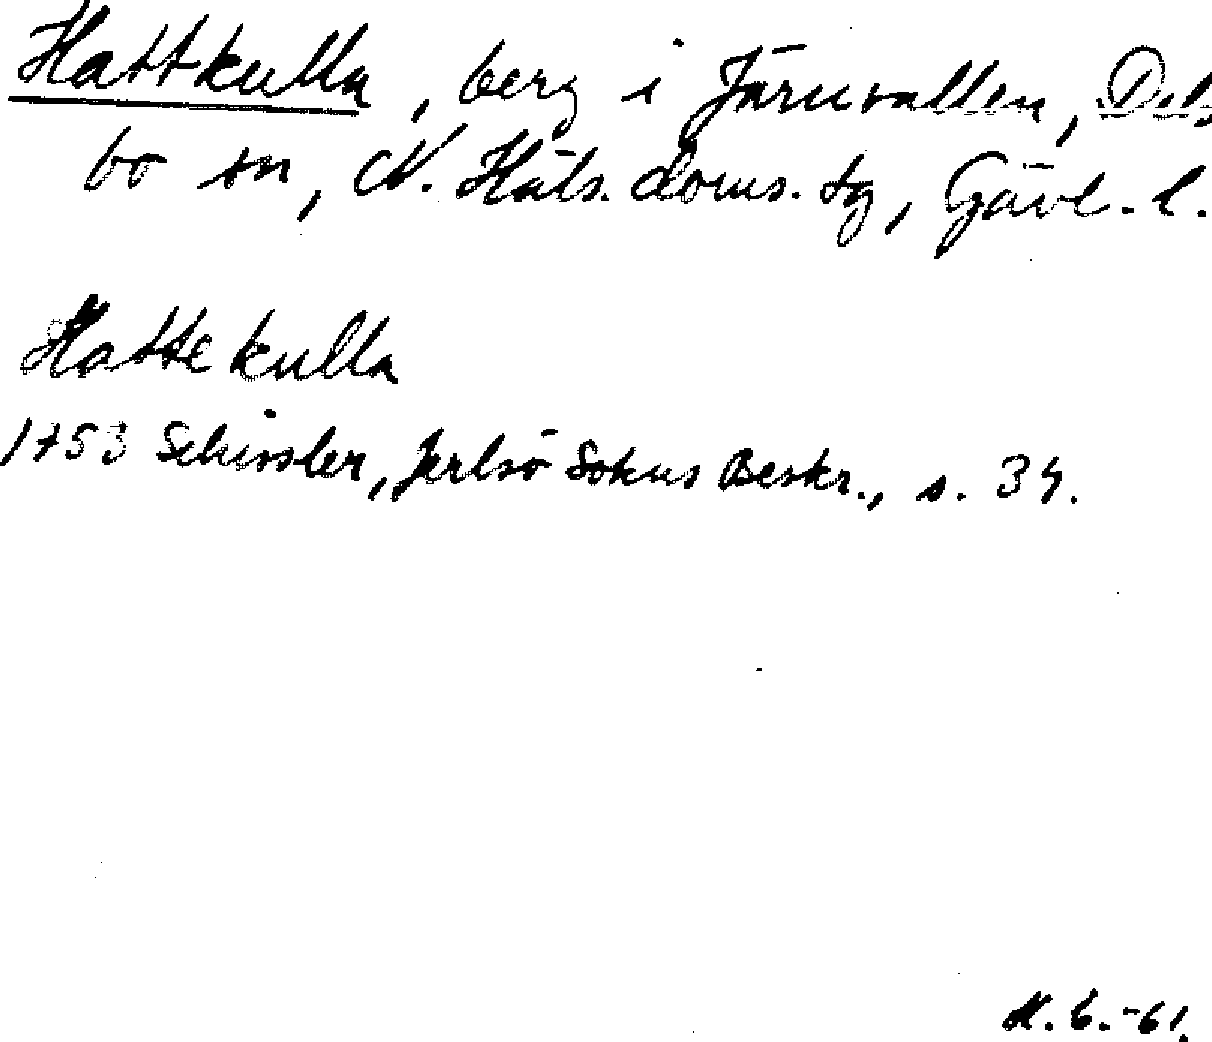 Hattkulla, berg i Järnvallen, Dels
bo sn, N. Häls. doms. tg, Gävl. l.
Hattekulla
1753 Schissler, Jerlsö Sokns Beskr., s. 34.
N. 6.-61.